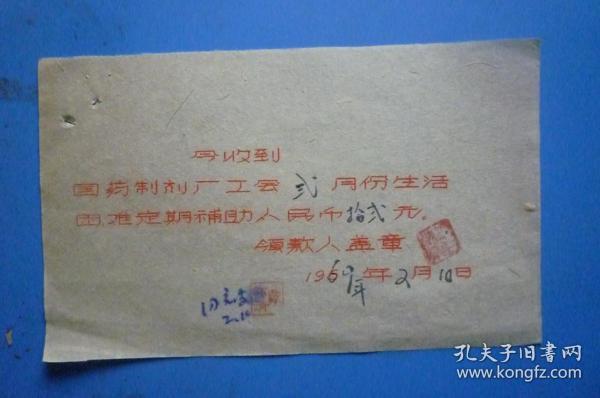 今收到
国药制剂厂工会 弍 月份生活
困难定期补助人民币拾弍元。
领款人盖章
1969年2月10日
同意支
2.10
孔夫子旧书网
www.kongfz.com